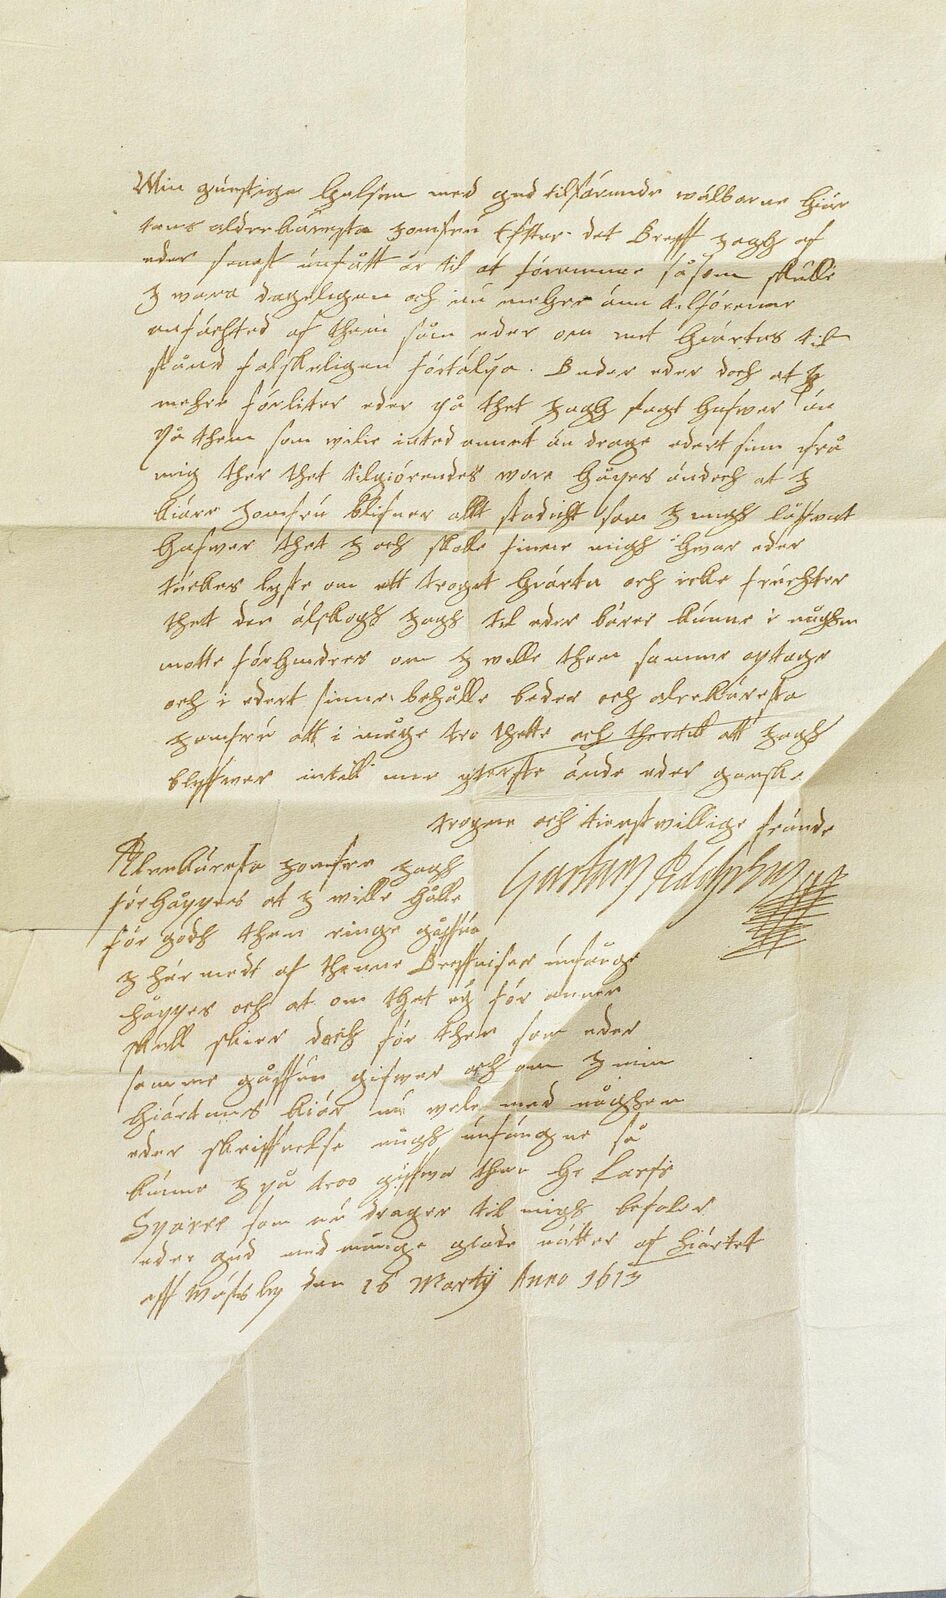 Min gunstige helsen med gud tilförende wälborne hiär
tans alderkäresta jomfru Efter det Breff jagh af
eder senest undfått är til at förnimme såsom skulle
J wara dageligen och nu mehre än tilförenne
anfächted af them som eder om mit hiärtas til
stånd falskeligen förtälja. Beder eder doch at J
mehre förliter eder på thet jagh sagt hafwer än
på them som wilie inted annet än drage edert sinn ifrå
mig ther thet tilgiörendes wore håpes ändoch at J
kiäre jomfru blifuer allt stadigt som J migh låffuat
hafwer thet J och skole finne migh hwar eder
täckes lyste om ett troget hiärta och icke fruchter
thett den älskogh jagh til eder bärer kunne i någhen
motte förhindres om J welle then samme optage
och i edert sinne behålle beder och alrekäresta
jomfru att i måge tro thette och thertill att jagh
blyffwer intill min yterste ände eder ganske
trogne och tienstwillige frände
Gustavus Adolphus
Alrekäresta jomfru jagh
förhåppes at J wille hålle
för godh then ringe gåffua
J här med af thenne Breffuiser undfånge
håppes och at om thet ej för annen
skull skier doch för then som eder
samme gåffuen gifwer och om J min
hiärtans kiär nu wele med någhen
eder skriffuelse migh undfägne så
kunne J på troo giffwa then H: Larss
Sparre som nu drager til migh befaler
eder gud med många glade nätter af hiärtet
aff Wäsby den 16 Martij Anno 1613